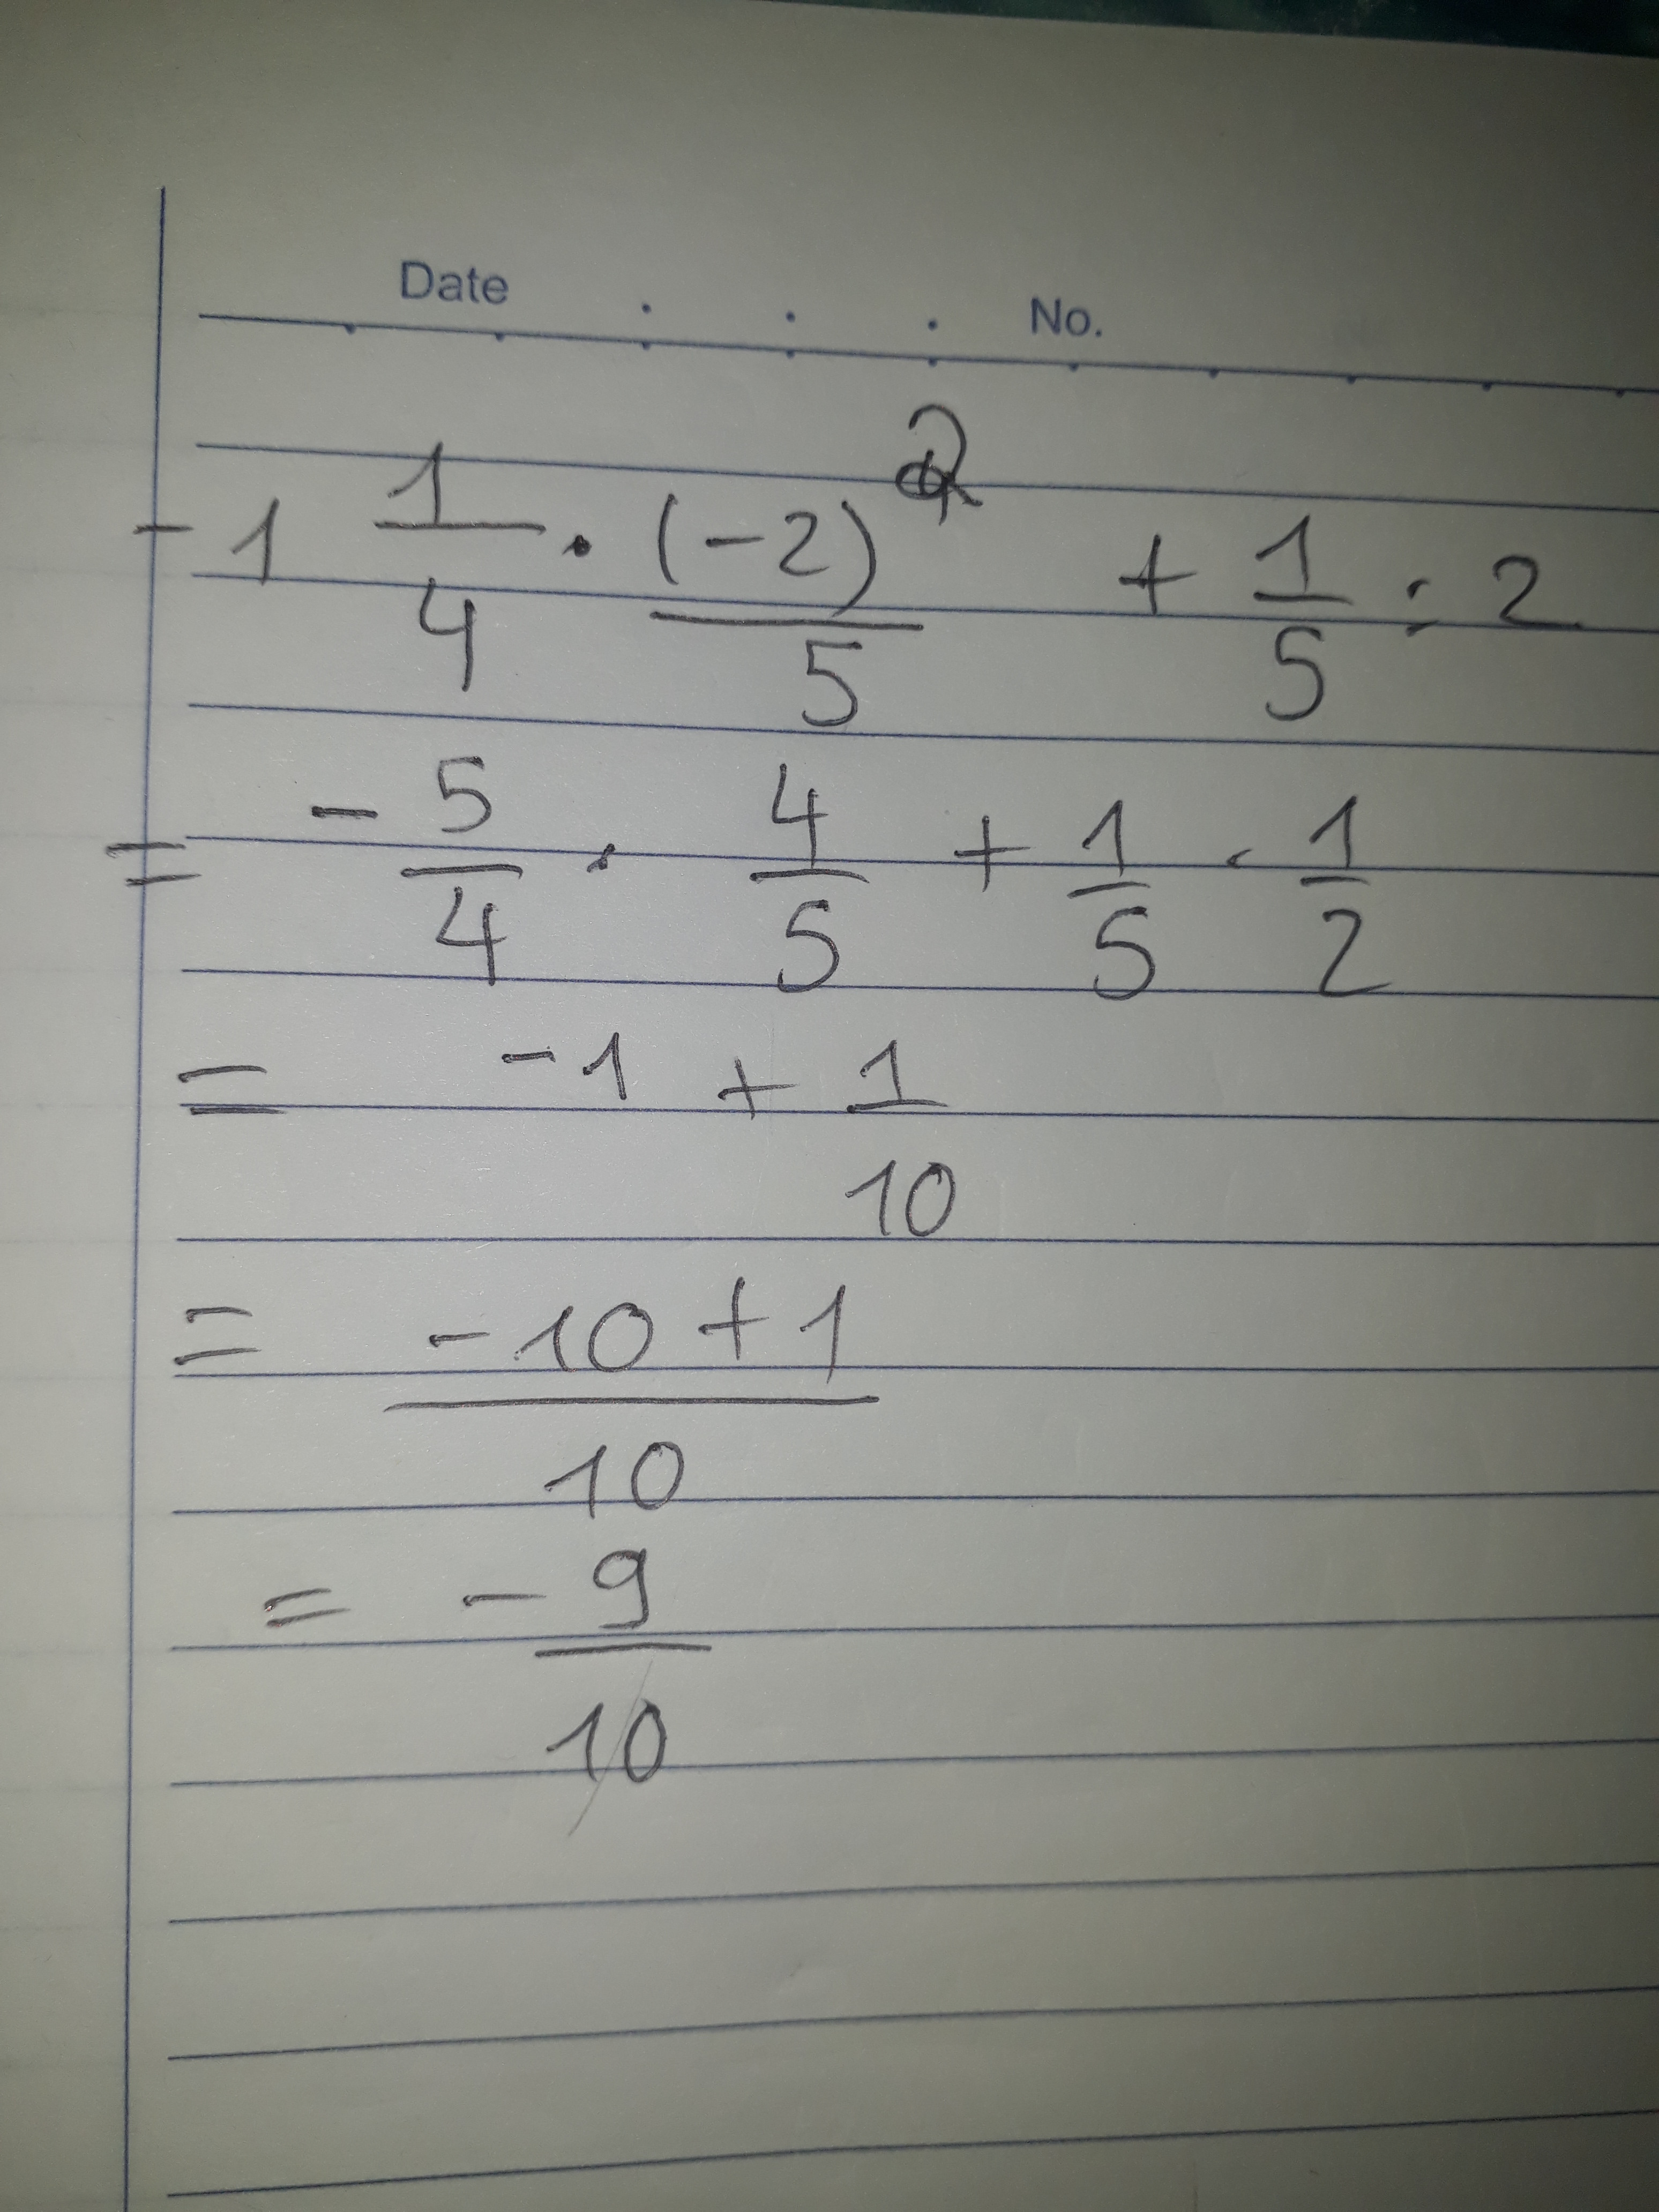 Date . . . No.
-1 1/4 · (-2)²/5 + 1/5 : 2
= -5/4 · 4/5 + 1/5 · 1/2
= -1 + 1/10
= -10+1/10
= -9/10